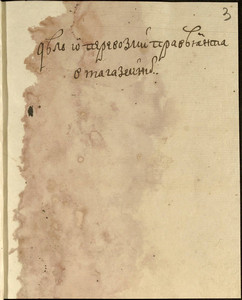 3
дѣло о перевозки правианта
в магазеины